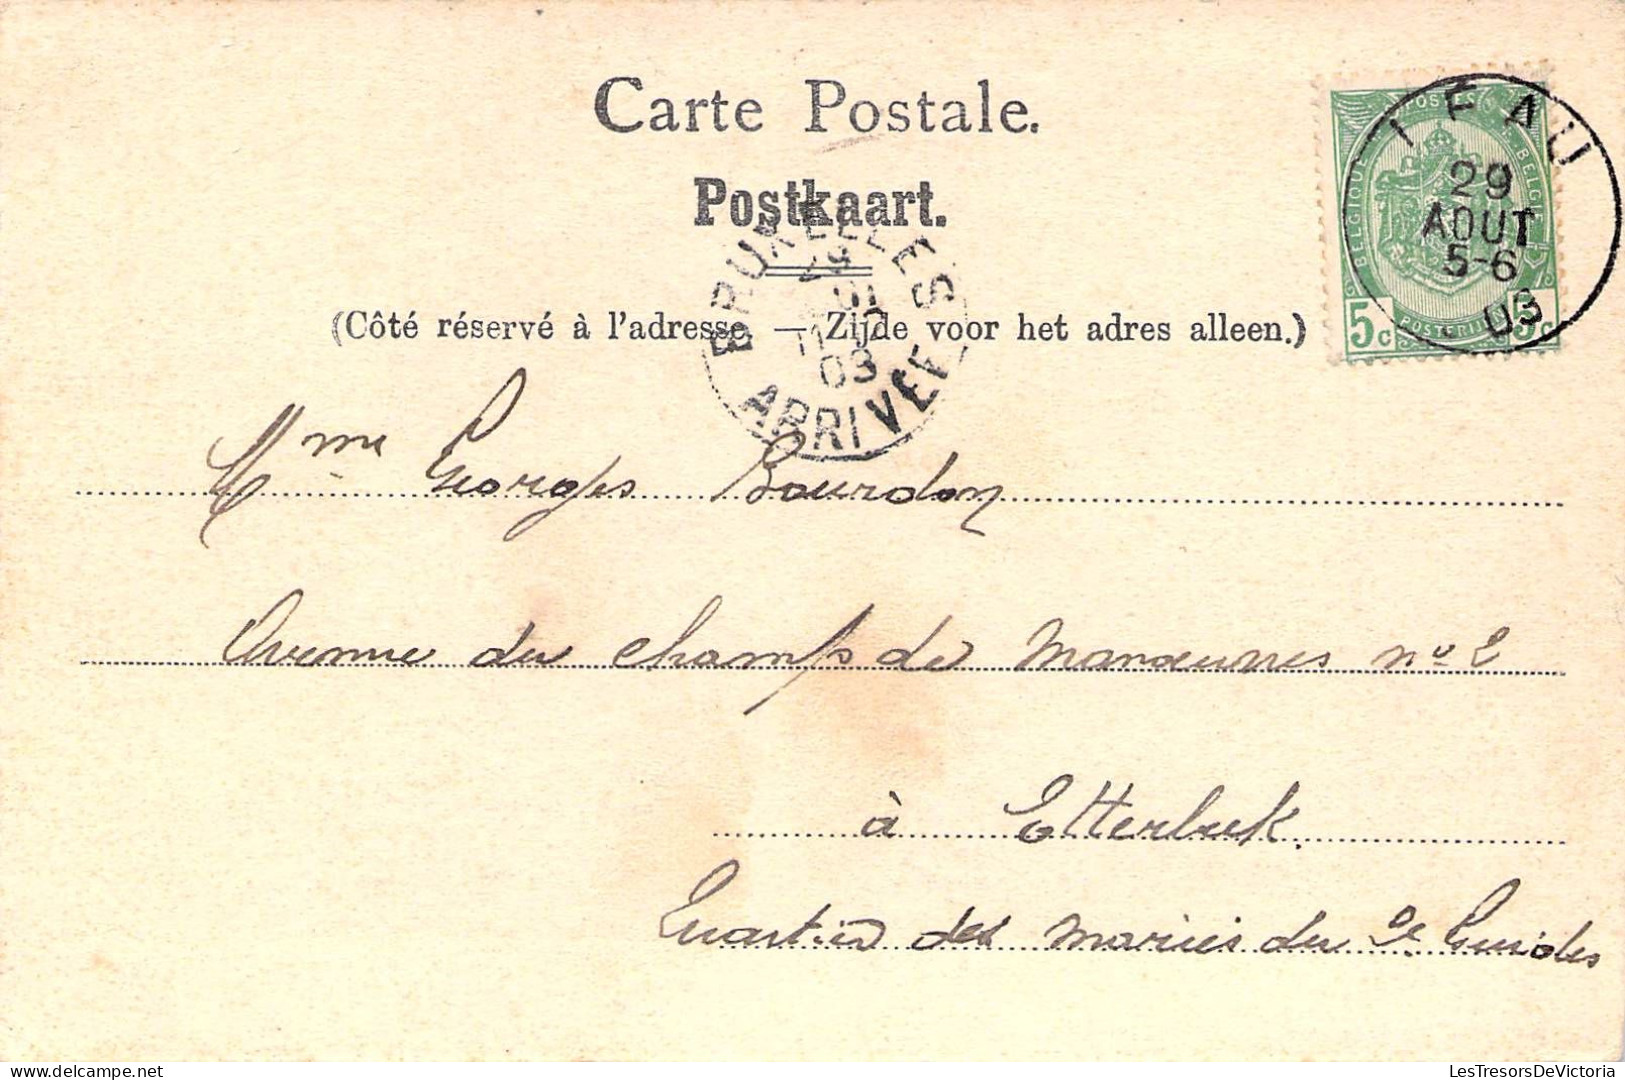 Carte Postale.
Postkaart.
(Côté réservé à l'adresse. — Zijde voor het adres alleen.)
POSTES
BELGIQUE BELGIE
5c POSTERIJEN 5c
29
AOUT
5-6
03
BRUXELLES
29
03
ARRIVEE
Mme Georges Bourdon
Avenue du champ de Manœuvres no 2
à Etterbeek.
Quartier des mariés du 2e Guides
LesTresorsDeVictoria